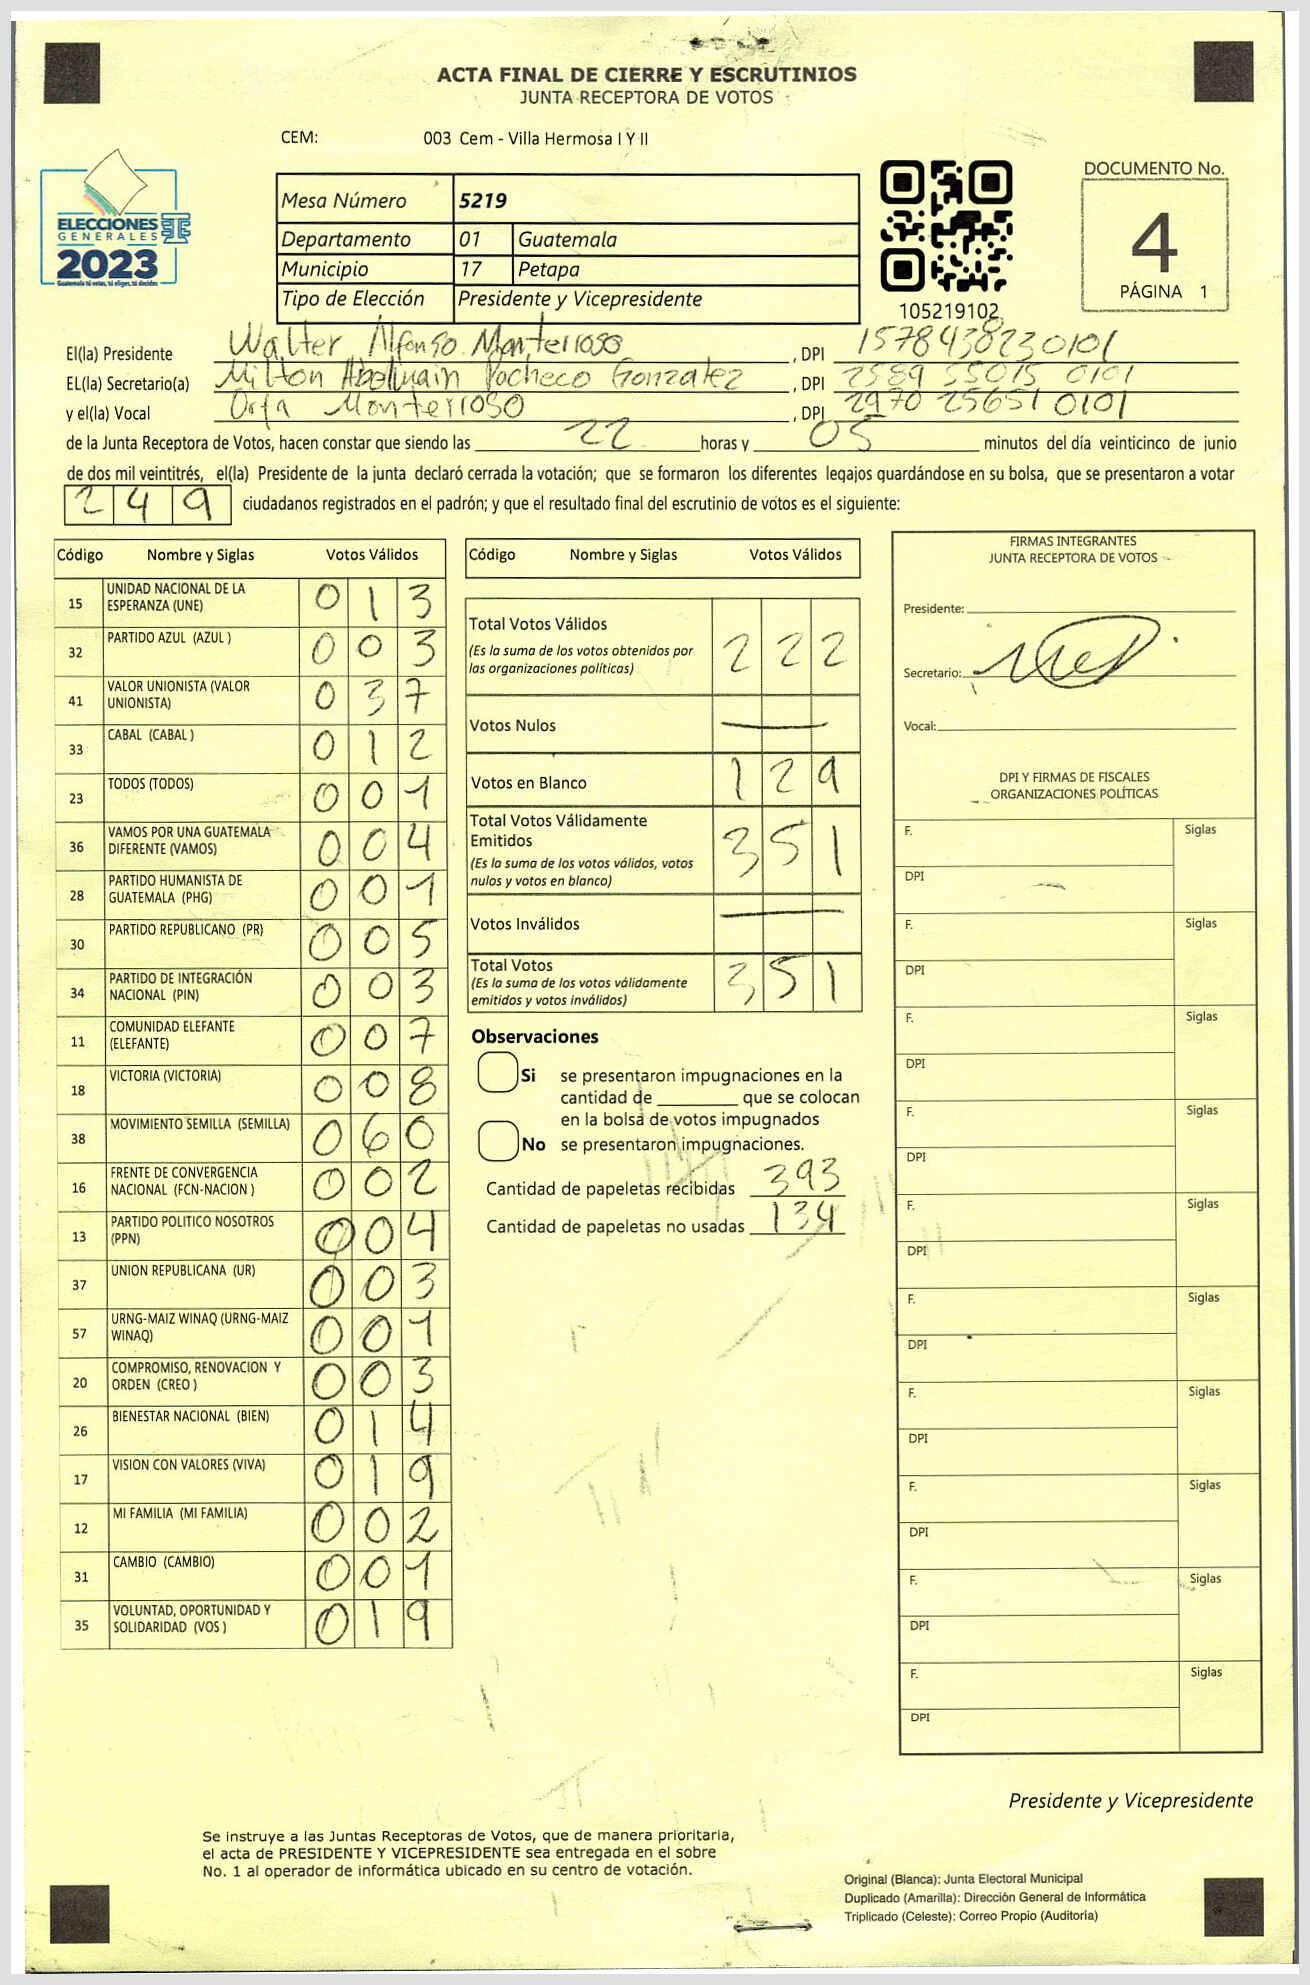 ACTA FINAL DE CIERRE Y ESCRUTINIOS
JUNTA RECEPTORA DE VOTOS
CEM: 003 Cem - Villa Hermosa I Y II
ELECCIONES
GENERALES
2023
Guatemala tú votas, tú eliges, tú decides
Mesa Número 5219
Departamento 01 Guatemala
Municipio 17 Petapa
Tipo de Elección Presidente y Vicepresidente
105219102
DOCUMENTO No.
4
PÁGINA 1
El(la) Presidente Walter Alfonso Monterroso, DPI 1578438230101
EL(la) Secretario(a) Milton Pacheco Gonzalez, DPI 2589 55015 0101
y el(la) Vocal Orfa Monterroso, DPI 2970 25651 0101
de la Junta Receptora de Votos, hacen constar que siendo las 22 horas y 05 minutos del día veinticinco de junio
de dos mil veintitrés, el(la) Presidente de la junta declaró cerrada la votación; que se formaron los diferentes legajos guardándose en su bolsa, que se presentaron a votar
249 ciudadanos registrados en el padrón; y que el resultado final del escrutinio de votos es el siguiente:
Código Nombre y Siglas Votos Válidos
15 UNIDAD NACIONAL DE LA ESPERANZA (UNE) 013
32 PARTIDO AZUL (AZUL ) 003
41 VALOR UNIONISTA (VALOR UNIONISTA) 037
33 CABAL (CABAL ) 012
23 TODOS (TODOS) 001
36 VAMOS POR UNA GUATEMALA DIFERENTE (VAMOS) 004
28 PARTIDO HUMANISTA DE GUATEMALA (PHG) 001
30 PARTIDO REPUBLICANO (PR) 005
34 PARTIDO DE INTEGRACIÓN NACIONAL (PIN) 003
11 COMUNIDAD ELEFANTE (ELEFANTE) 007
18 VICTORIA (VICTORIA) 008
38 MOVIMIENTO SEMILLA (SEMILLA) 060
16 FRENTE DE CONVERGENCIA NACIONAL (FCN-NACION ) 002
13 PARTIDO POLITICO NOSOTROS (PPN) 004
37 UNION REPUBLICANA (UR) 003
57 URNG-MAIZ WINAQ (URNG-MAIZ WINAQ) 001
20 COMPROMISO, RENOVACION Y ORDEN (CREO ) 003
26 BIENESTAR NACIONAL (BIEN) 014
17 VISION CON VALORES (VIVA) 019
12 MI FAMILIA (MI FAMILIA) 002
31 CAMBIO (CAMBIO) 001
35 VOLUNTAD, OPORTUNIDAD Y SOLIDARIDAD (VOS ) 019
Código Nombre y Siglas Votos Válidos
Total Votos Válidos 222
(Es la suma de los votos obtenidos por
las organizaciones políticas)
Votos Nulos —
Votos en Blanco 129
Total Votos Válidamente
Emitidos 351
(Es la suma de los votos válidos, votos
nulos y votos en blanco)
Votos Inválidos —
Total Votos 351
(Es la suma de los votos válidamente
emitidos y votos inválidos)
Observaciones
Si se presentaron impugnaciones en la
cantidad de ________ que se colocan
en la bolsa de votos impugnados
No se presentaron impugnaciones.
Cantidad de papeletas recibidas 393
Cantidad de papeletas no usadas 134
FIRMAS INTEGRANTES
JUNTA RECEPTORA DE VOTOS
Presidente:
Secretario:
Vocal:
DPI Y FIRMAS DE FISCALES
ORGANIZACIONES POLÍTICAS
F. Siglas
DPI
F. Siglas
DPI
F. Siglas
DPI
F. Siglas
DPI
F. Siglas
DPI
F. Siglas
DPI
F. Siglas
DPI
F. Siglas
DPI
F. Siglas
DPI
F. Siglas
DPI
Presidente y Vicepresidente
Se instruye a las Juntas Receptoras de Votos, que de manera prioritaria,
el acta de PRESIDENTE Y VICEPRESIDENTE sea entregada en el sobre
No. 1 al operador de informática ubicado en su centro de votación.
Original (Blanca): Junta Electoral Municipal
Duplicado (Amarilla): Dirección General de Informática
Triplicado (Celeste): Correo Propio (Auditoría)